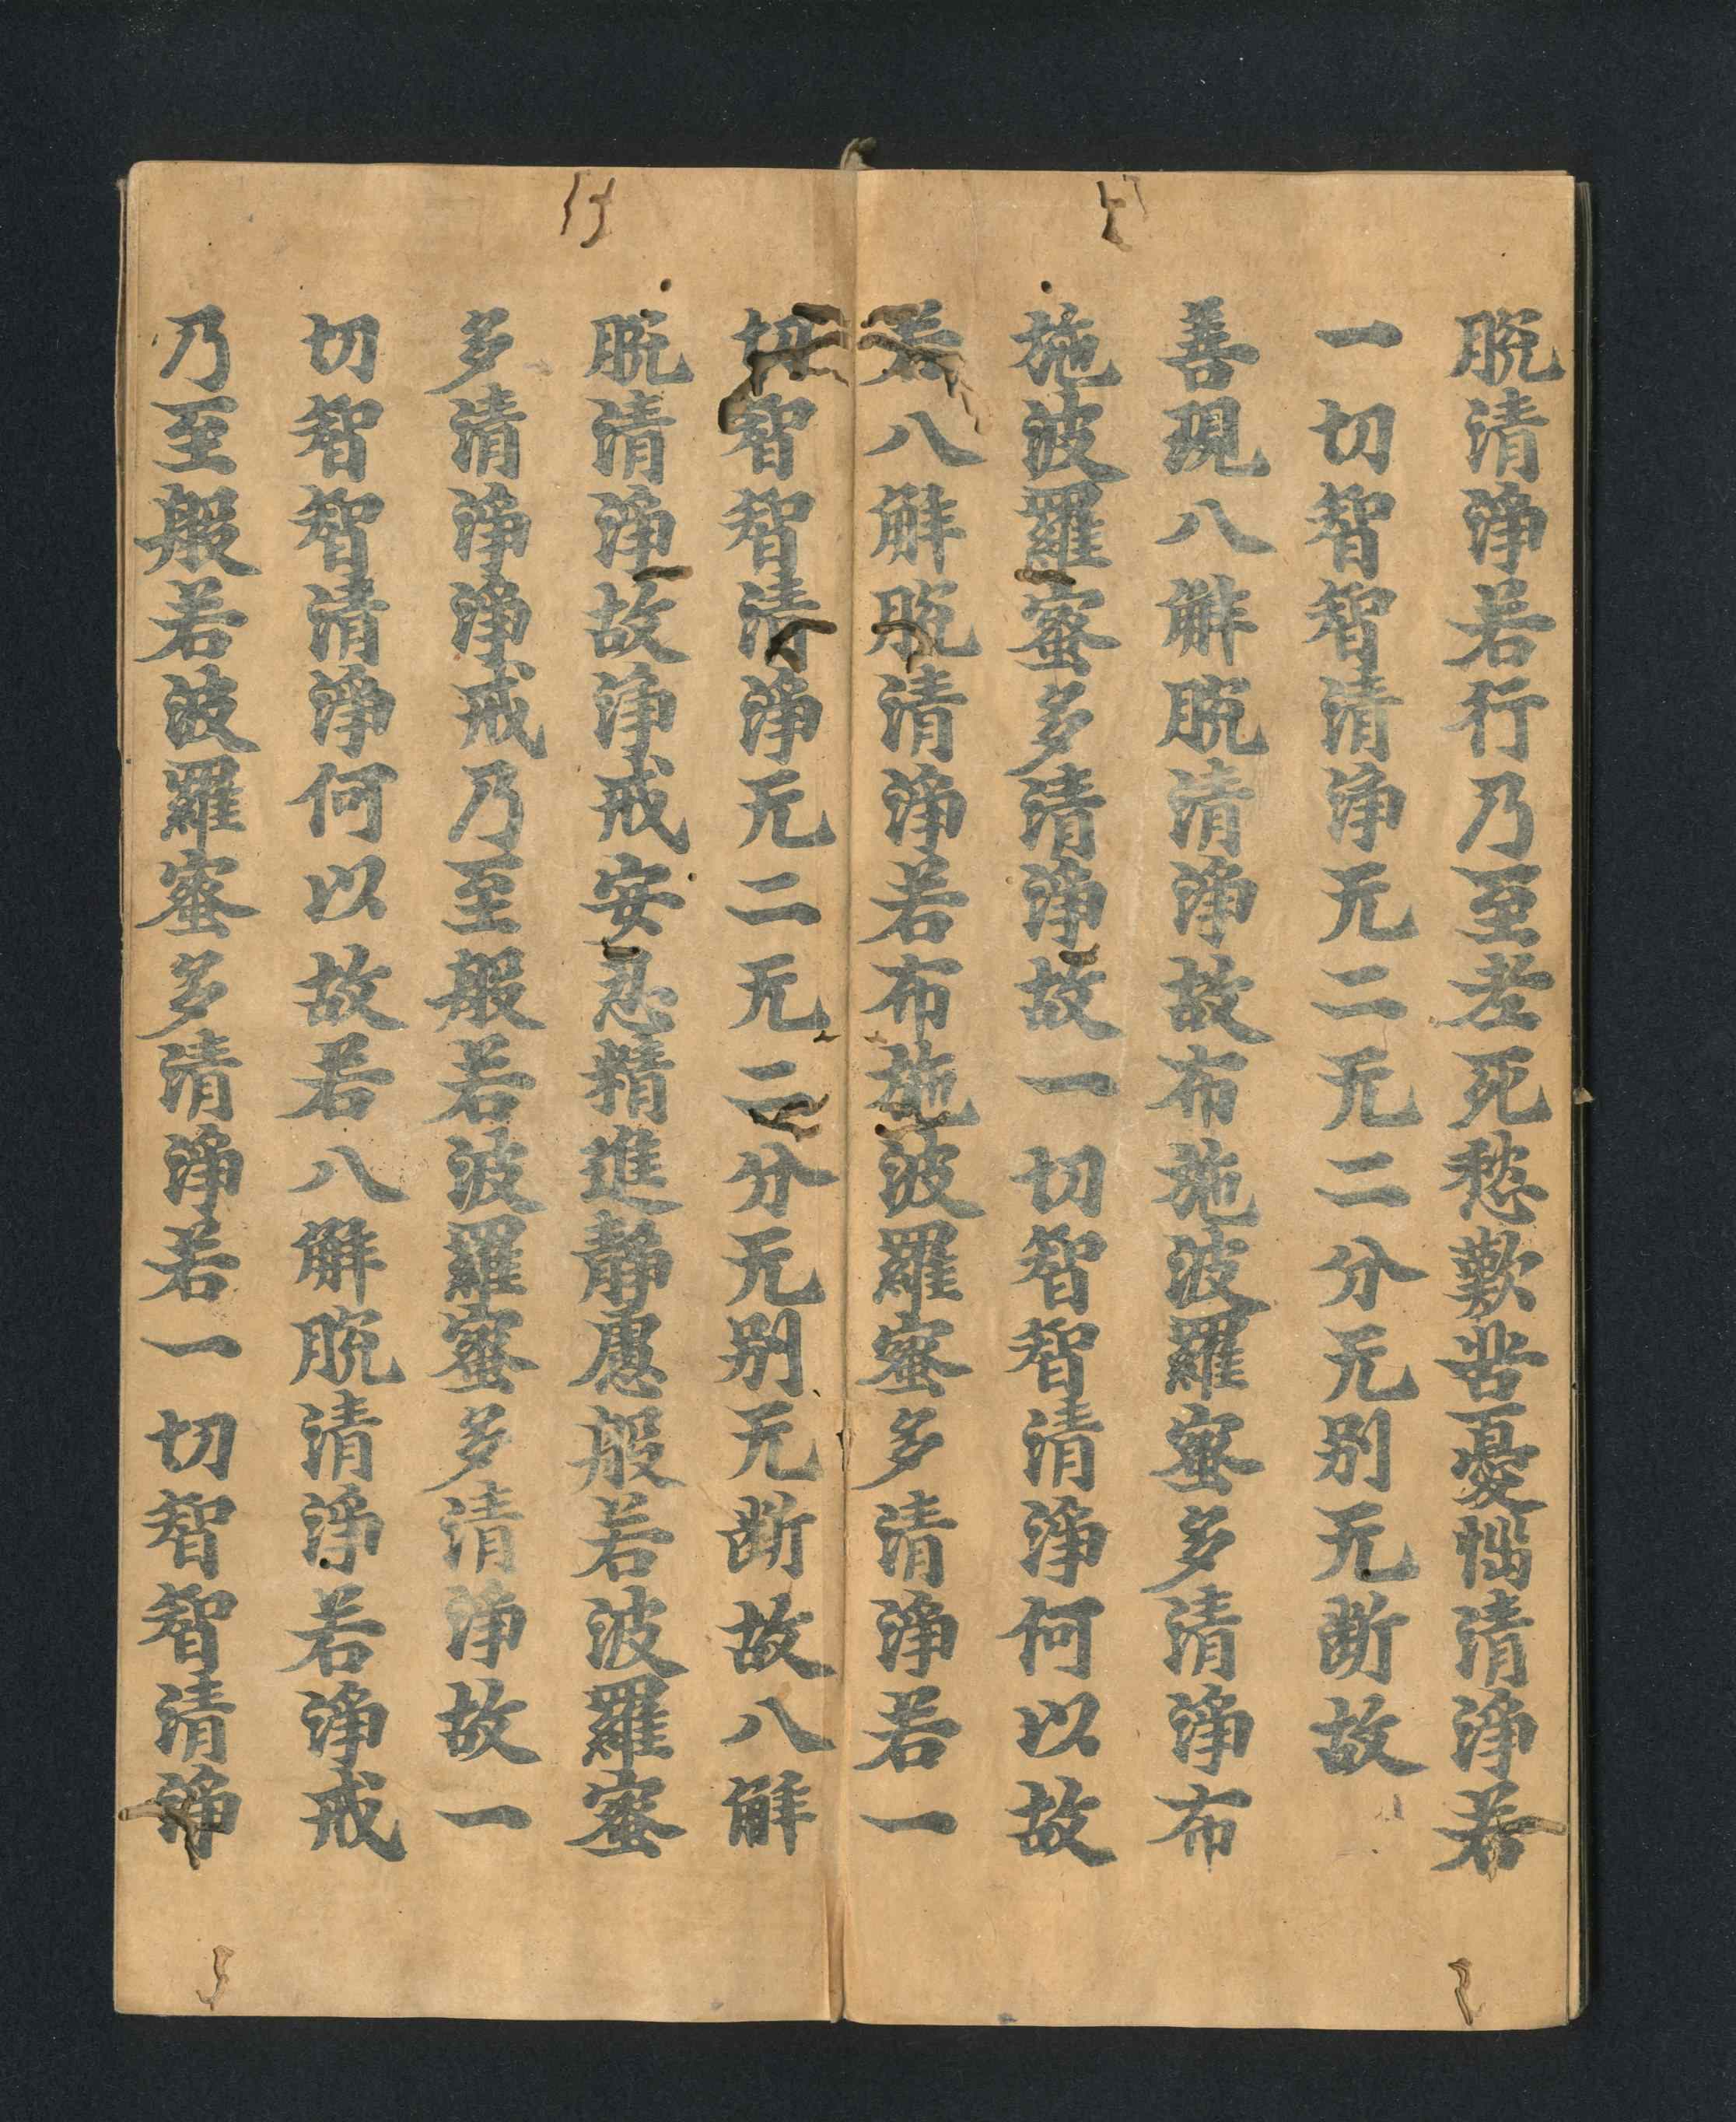 脫清淨若行乃至老死愁歎苦憂惱清淨若
一切智智清淨无二无二分无別无斷故
善現八解脫清淨故布施波羅蜜多清淨布
施波羅蜜多清淨故一切智智清淨何以故
若八解脫清淨若布施波羅蜜多清淨若一
切智智清淨无二无二分无別无斷故八解
脫清淨故淨戒安忍精進靜慮般若波羅蜜
多清淨淨戒乃至般若波羅蜜多清淨故一
切智智清淨何以故若八解脫清淨若淨戒
乃至般若波羅蜜多清淨若一切智智清淨